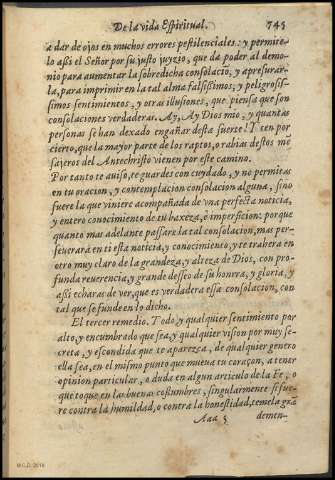 De la vida Espiritual. 743
a dar de ojos en muchos errores pestilenciales: y permite-
lo aßi el Señor por su justo juyzio, que da poder al demo-
nio para aumentar la sobredicha consolaciõ, y apresurar-
la, para imprimir en la tal alma falsißimos, y peligrosiß-
simos sentimientos, y otras illusiones, que piensa que son
consolaciones verdaderas. Ay, Ay Dios mio, y quantas
personas se han dexado engañar desta suerte! Tẽ por
cierto, que la mayor parte de los raptos, o rabias destos mẽ
sajeros del Antechristo vienen por este camino.
Por tanto te auiso, te guardes con cuydado, y no permitas
en tu oracion, y contemplacion consolacion alguna, sino
fuere la que viniere acompañada de vna perfecta noticia,
y entero conocimiento de tu baxeza, è imperficion: porque
quanto mas adelante passare la tal consolacion, mas per-
seuerará en ti esta noticia, y conocimiento, y te trahera en
otro muy claro de la grandeza, y alteza de Dios, con pro-
funda reuerencia, y grande desseo de su honrra, y gloria, y
aßi echaras de ver, que es verdadera essa consolacion, con
tal que se funde en lo dicho.
El tercer remedio. Todo, y qualquier sentimiento por
alto, y encumbrado que sea, y qualquier vision por muy se-
creta, y escondida que te aparezca, de qualquier genero
ella sea, en el mismo punto que mueua tu coraçon, a tener
opinion particular, o duda en algun articulo de la Fe, o
que toque en las buenas costumbres, singularmente si fue-
re contra la humildad, o contra la honestidad, temela grã
Aaa 3 demen-
M.C.D. 2018